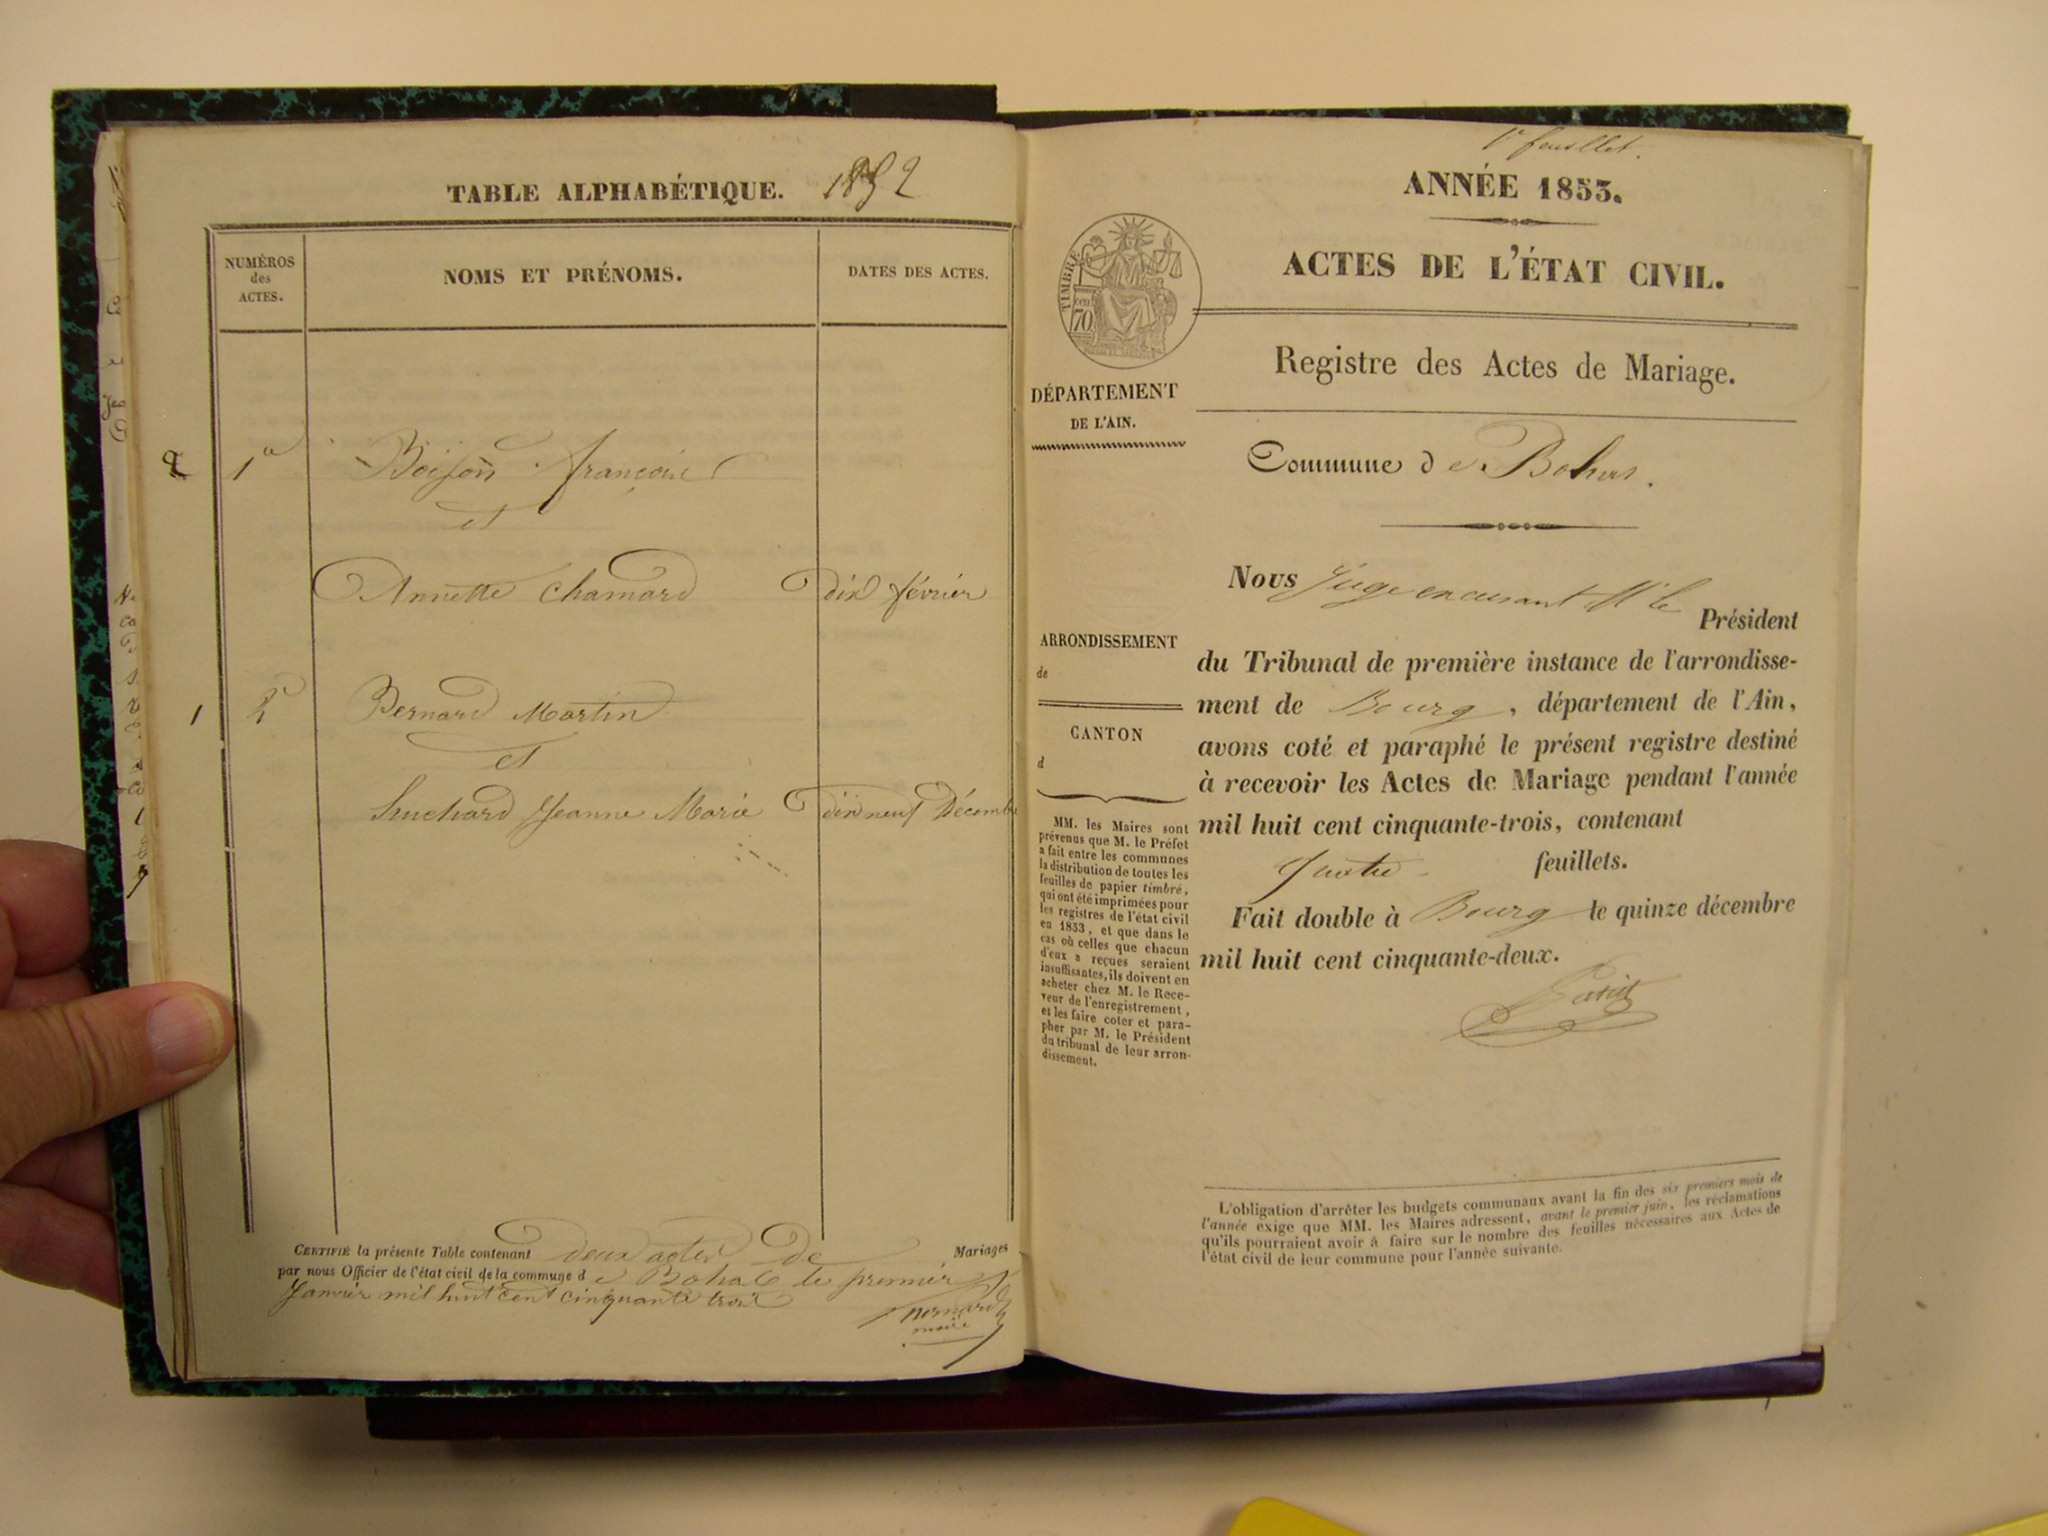 TABLE ALPHABÉTIQUE. 1852
NUMÉROS
des
ACTES.
NOMS ET PRÉNOMS.
DATES DES ACTES.
2 1º Boisson françois
et
Annette Chamard dix février
1 2º Bernard Martin
et
Huchard Jeanne Marie dix neuf Décembre
CERTIFIÉ la présente Table contenant deux actes de Mariages
par nous Officier de l'état civil de la commune de Bohas le premier
Janvier mil huit cent cinquante trois
Bernard
maire
1er feuillet.
ANNÉE 1853.
ACTES DE L'ÉTAT CIVIL.
TIMBRE
70
cent
Registre des Actes de Mariage.
DÉPARTEMENT
DE L'AIN.
Commune de Bohas.
ARRONDISSEMENT
de
CANTON
d
MM. les Maires sont
prévenus que M. le Préfet
a fait entre les communes
la distribution de toutes les
feuilles de papier timbré,
qui ont été imprimées pour
les registres de l'état civil
en 1853, et que dans le
cas où celles que chacun
d'eux a reçues seraient
insuffisantes, ils doivent en
acheter chez M. le Rece-
veur de l'enregistrement,
et les faire coter et para-
pher par M. le Président
du tribunal de leur arron-
dissement.
Nous Juge en cusant Mr le Président
du Tribunal de première instance de l'arrondisse-
ment de Bourg, département de l'Ain,
avons coté et paraphé le présent registre destiné
à recevoir les Actes de Mariage pendant l'année
mil huit cent cinquante-trois, contenant
quatre feuillets.
Fait double à Bourg le quinze décembre
mil huit cent cinquante-deux.
L'obligation d'arrêter les budgets communaux avant la fin des six premiers mois de
l'année exige que MM. les Maires adressent, avant le premier juin, les réclamations
qu'ils pourraient avoir à faire sur le nombre des feuilles nécessaires aux Actes de
l'état civil de leur commune pour l'année suivante.